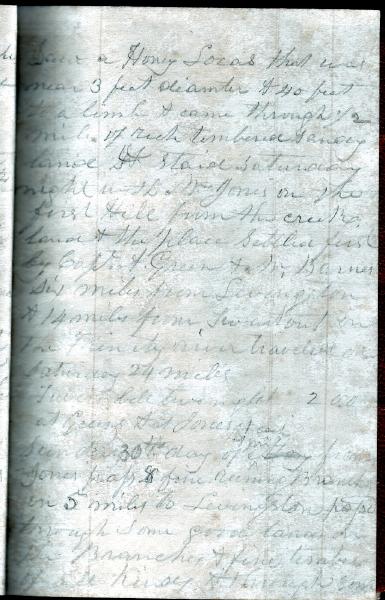 Saw a Honey Locas that was
near 3 feet diamter & 40 feet
to a limb & came through 1/2
mile of rich timbered sandy
land & staid Saturday
night with Mr Jones on the
first Hill from the creek
land & the place Settled first
by Capt Green & Mr Barnes
Six miles from Livingston
& 14 miles from Swartout on
the Trinity river traveled on
Saturday 24 miles
bill 2
at Greens & at Jones
30th day of from
Jones pass 8 fine runing Branch
in 5 miles to Livingston pass
through Some good land on
the Branches & fine timber
of all Kinds & through Som